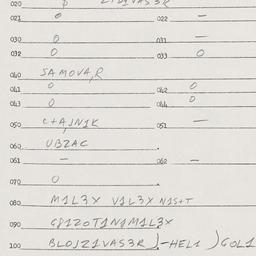 020
021 0 022 —
030 0 031 —
032 0 033 0
040 SAMOVAR
041 0 042 0
043 0 044 0
050 051 —
060 UBZAC
061 — 062 —
070 0
080 M1L3X V1L3X N1S+T
090
100 BLOJZ1VAS3R)-HEL1 )GOL1